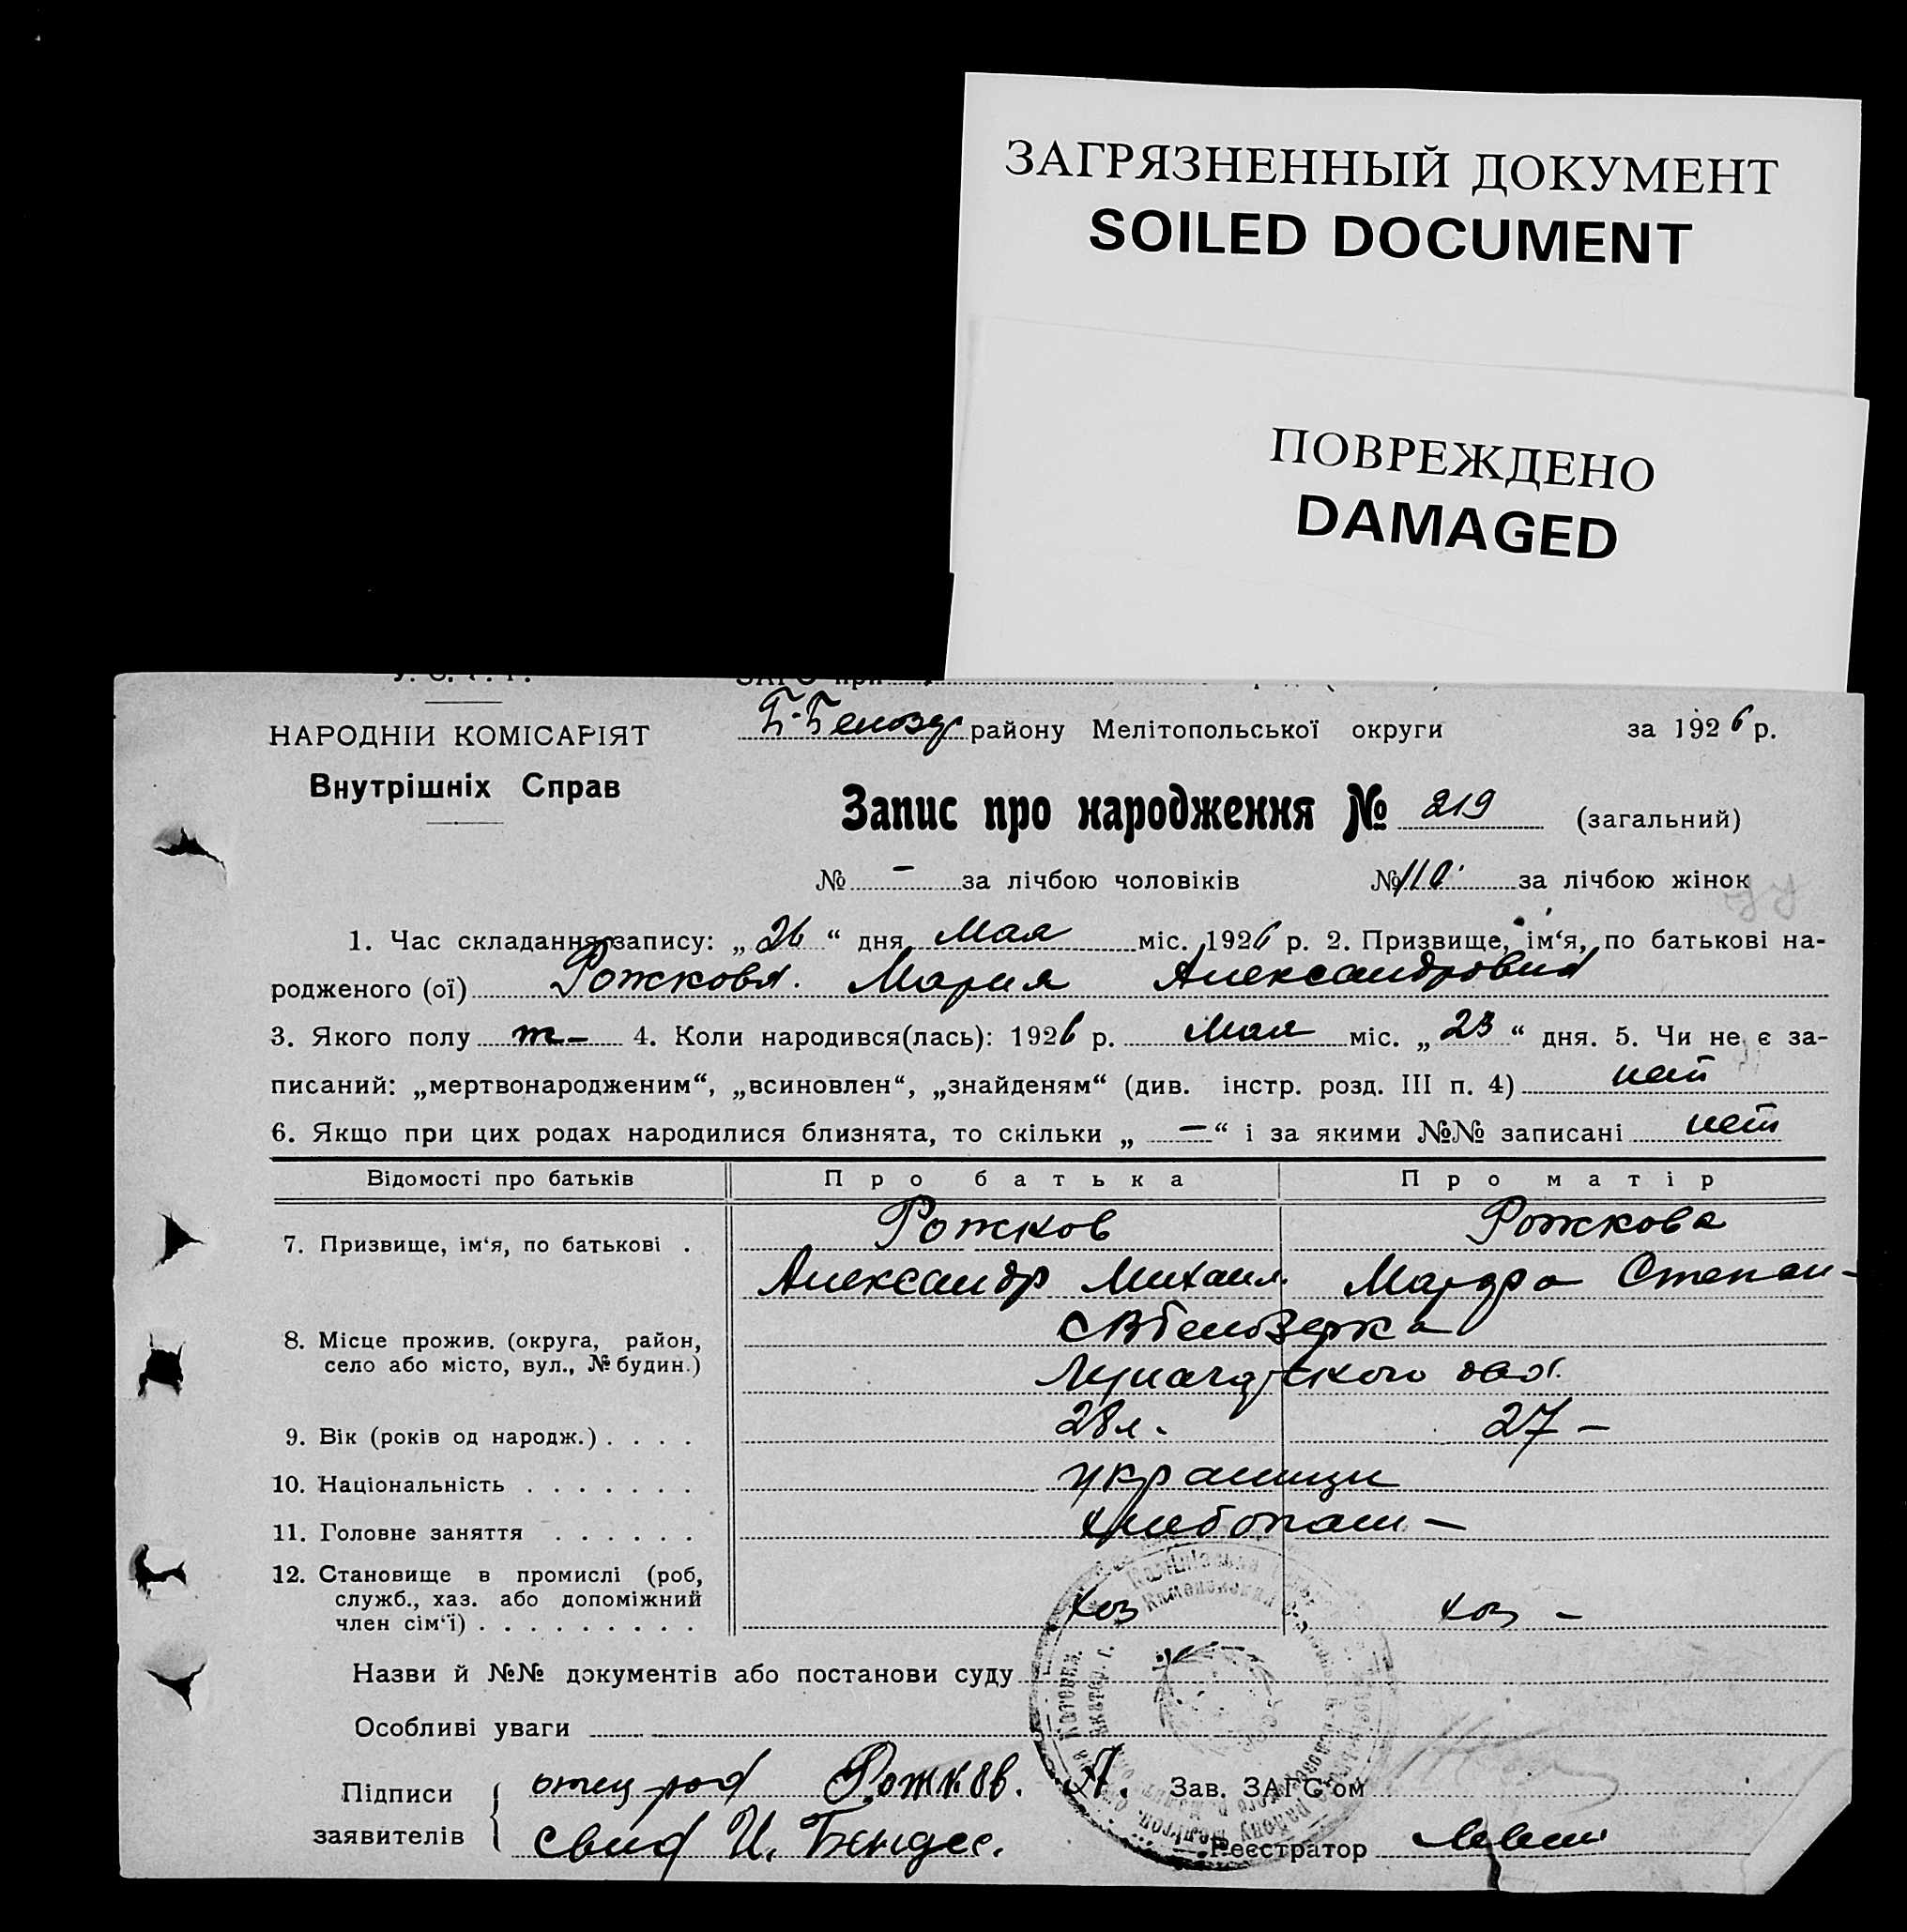 ЗАГРЯЗНЕННЫЙ ДОКУМЕНТ
SOILED DOCUMENT
ПОВРЕЖДЕНО
DAMAGED
У. С. Р. Р.
ЗАГС при
НАРОДНІЙ КОМІСАРІЯТ
Внутрішніх Справ
Б-Белозер району Мелітопольської округи за 1926 р.
Запис про народження № 219 (загальний)
№ — за лічбою чоловіків № 110 за лічбою жінок
1. Час складання запису: „ 26 “ дня Мая міс. 1926 р. 2. Призвище, ім‘я, по батькові на-
родженого (ої) Рожкова. Мария Александровна
3. Якого полу ж — 4. Коли народився(лась): 1926 р. Мая міс. „ 23 “ дня. 5. Чи не є за-
писаний: „мертвонародженим“, „всиновлен“, „знайденям“ (див. інстр. розд. III п. 4) нет
6. Якщо при цих родах народилися близнята, то скільки „ — “ і за якими №№ записані нет
Відомості про батьків Про батька Про матір
7. Призвище, ім‘я, по батькові . Рожков Рожкова
Александр Михаил. Степан-
8. Місце прожив. (округа, район,
село або місто, вул., № будин.)
9. Вік (років од народж.) . . . . 28 л. 27 —
10. Національність . . . . . . . украинцы
11. Головне заняття . . . . . . хлебопаш —
12. Становище в промислі (роб,
служб., хаз. або допоміжний
член сім‘ї) . . . . . . . . . хоз хоз —
Назви й №№ документів або постанови суду
Особливі уваги
Підписи
заявителів
отец Рожков. А. Зав. ЗАГС‘ом
И. Реєстратор